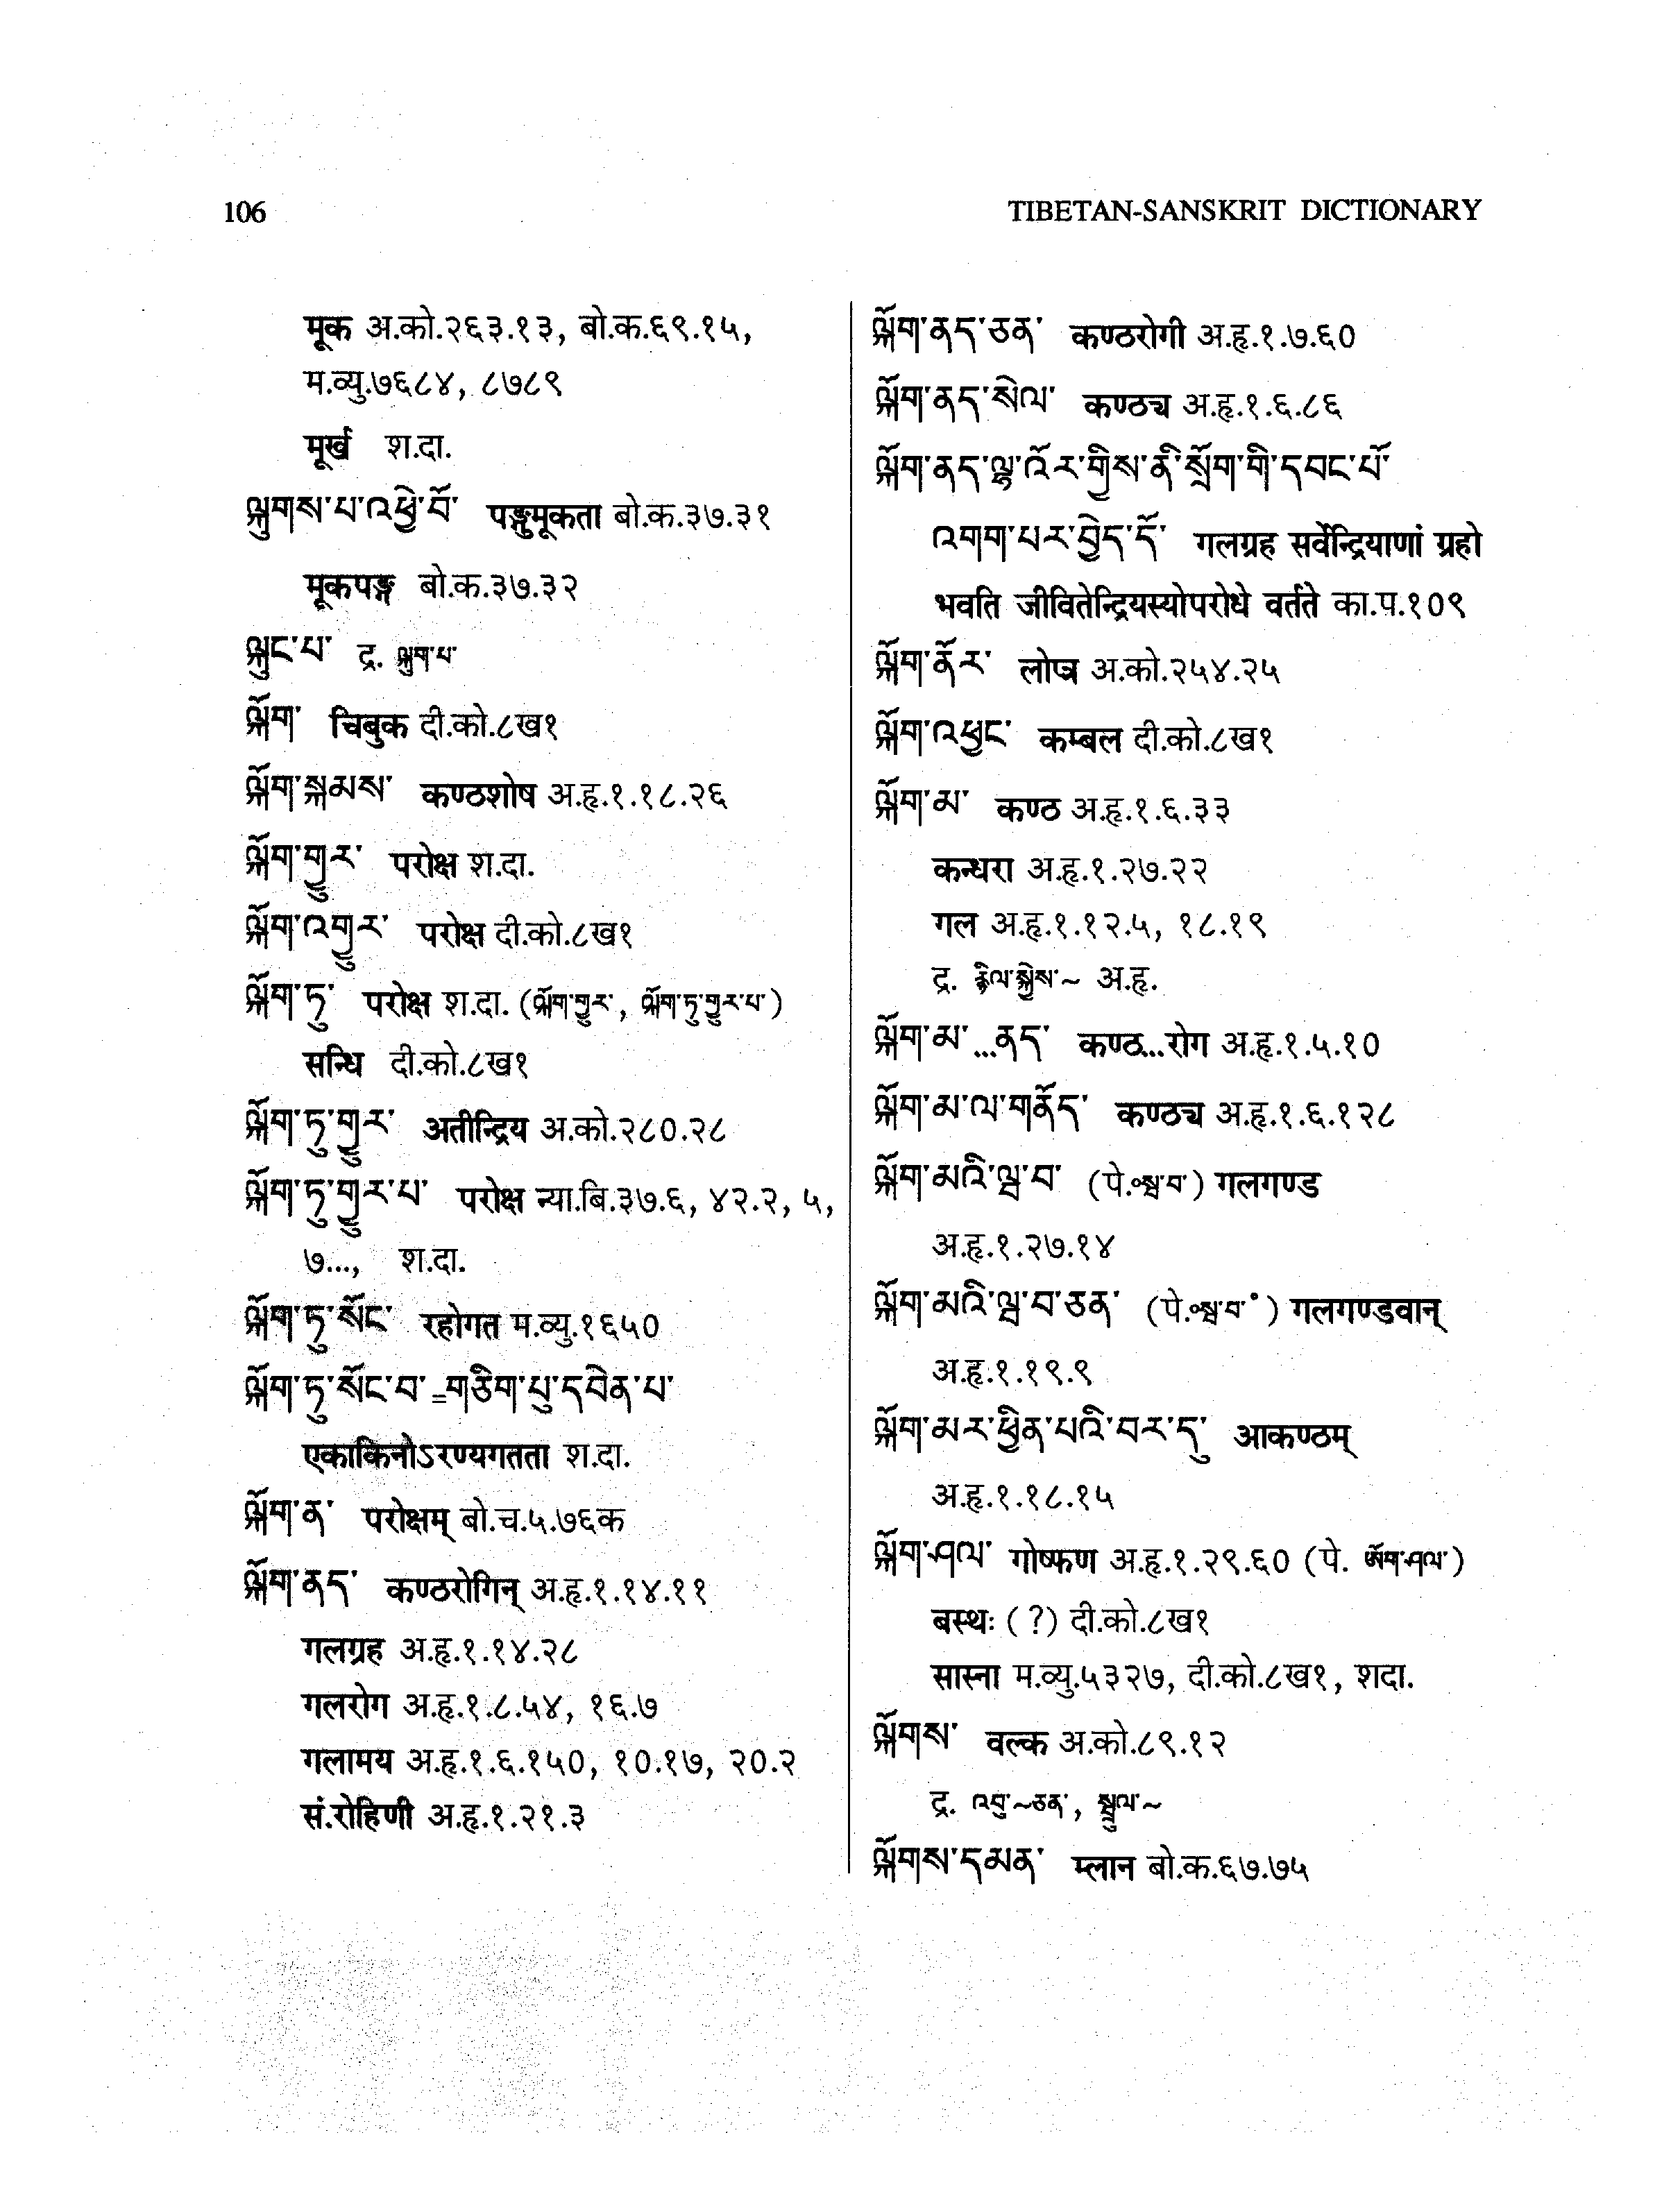 106
TIBETAN-SANSKRIT DICTIONARY
मूक अ.को.२६३.१३, बो.क.६९.१५,
म.व्यु.७६८४, ८७८९
मूर्ख श.दा.
ལྐུགས་པ་འཕྱེ་བོ་ पङ्गुमूकता बो.क.३७.३१
मूकपङ्ग बो.क.३७.३२
ལྐུང་པ་ द्र. ལྐུག་པ་
ལྐོག་ चिबुक दी.को.८ख१
ལྐོག་སྐམས་ कण्ठशोष अ.हृ.१.१८.२६
ལྐོག་གྱུར་ परोक्ष श.दा.
ལྐོག་འགྱུར་ परोक्ष दी.को.८ख१
ལྐོག་ཏུ་ परोक्ष श.दा. (ལྐོག་གྱུར་, ལྐོག་ཏུ་གྱུར་པ་)
सन्धि दी.को.८ख१
ལྐོག་ཏུ་གྱུར་ अतीन्द्रिय अ.को.२८०.२८
ལྐོག་ཏུ་གྱུར་པ་ परोक्ष न्या.बि.३७.६, ४२.२, ५,
७..., श.दा.
ལྐོག་ཏུ་སོང་ रहोगत म.व्यु.१६५०
ལྐོག་ཏུ་སོང་བ་ =གཅིག་པུ་དབེན་པ་
एकाकिनोऽरण्यगतता श.दा.
ལྐོག་ན་ परोक्षम् बो.च.५.७६क
ལྐོག་ནད་ कण्ठरोगिन् अ.हृ.१.१४.११
गलग्रह अ.हृ.१.१४.२८
गलरोग अ.हृ.१.८.५४, १६.७
गलामय अ.हृ.१.६.१५०, १०.१७, २०.२
सं.रोहिणी अ.हृ.१.२१.३
ལྐོག་ནད་ཅན་ कण्ठरोगी अ.हृ.१.७.६०
ལྐོག་ནད་སེལ་ कण्ठ्य अ.हृ.१.६.८६
ལྐོག་ནད་ལྷ་འོར་གྱིས་ནི་སྲོག་གི་དབང་པོ་
འགག་པར་བྱེད་དོ་ गलग्रह सर्वेन्द्रियाणां ग्रहो
भवति जीवितेन्द्रियस्योपरोधे वर्तते का.प.१०९
ལྐོག་ནོར་ लोप्त्र अ.को.२५४.२५
ལྐོག་འཕྱང་ कम्बल दी.को.८ख१
ལྐོག་མ་ कण्ठ अ.हृ.१.६.३३
कन्धरा अ.हृ.१.२७.२२
गल अ.हृ.१.१२.५, १८.१९
द्र. རྙིལ་སྐྱེས་~ अ.हृ.
ལྐོག་མ་...ནད་ कण्ठ...रोग अ.हृ.१.५.१०
ལྐོག་མ་ལ་གནོད་ कण्ठ्य अ.हृ.१.६.१२८
ལྐོག་མའི་ལྦ་བ་ (पे.०སྦ་བ་) गलगण्ड
अ.हृ.१.२७.१४
ལྐོག་མའི་ལྦ་བ་ཅན་ (पे.०སྦ་བ་°) गलगण्डवान्
अ.हृ.१.१९.९
ལྐོག་མར་ཕྱིན་པའི་བར་དུ་ आकण्ठम्
अ.हृ.१.१८.१५
ལྐོག་ཤལ་ गोष्फण अ.हृ.१.२९.६० (पे. ཨོག་ཤལ་)
बस्थः (?) दी.को.८ख१
सास्ना म.व्यु.५३२७, दी.को.८ख१, शदा.
ལྐོགས་ वल्क अ.को.८९.१२
द्र. འབུ་~ཅན་, སྦྲུལ་~
ལྐོགས་དམན་ म्लान बो.क.६७.७५